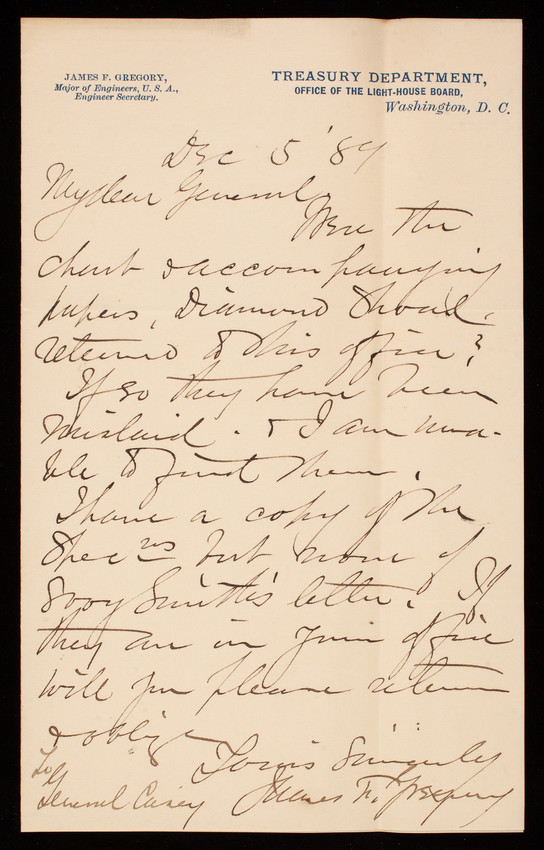 JAMES F. GREGORY,
Major of Engineers, U. S. A.,
Engineer Secretary.
TREASURY DEPARTMENT,
OFFICE OF THE LIGHT-HOUSE BOARD,
Washington, D. C.
Dec 5 '87
My dear General,
Were the
chart & accompanying
papers, Diamond Shoal,
returned to this office?
If so they have been
mislaid - & I am una-
ble to find them.
I have a copy of the
Specns but none of
Sooy Smith's letter. If
they are in your office
will you please return
& oblige
Yours Sincerely
James F. Gregory
To
General Casey